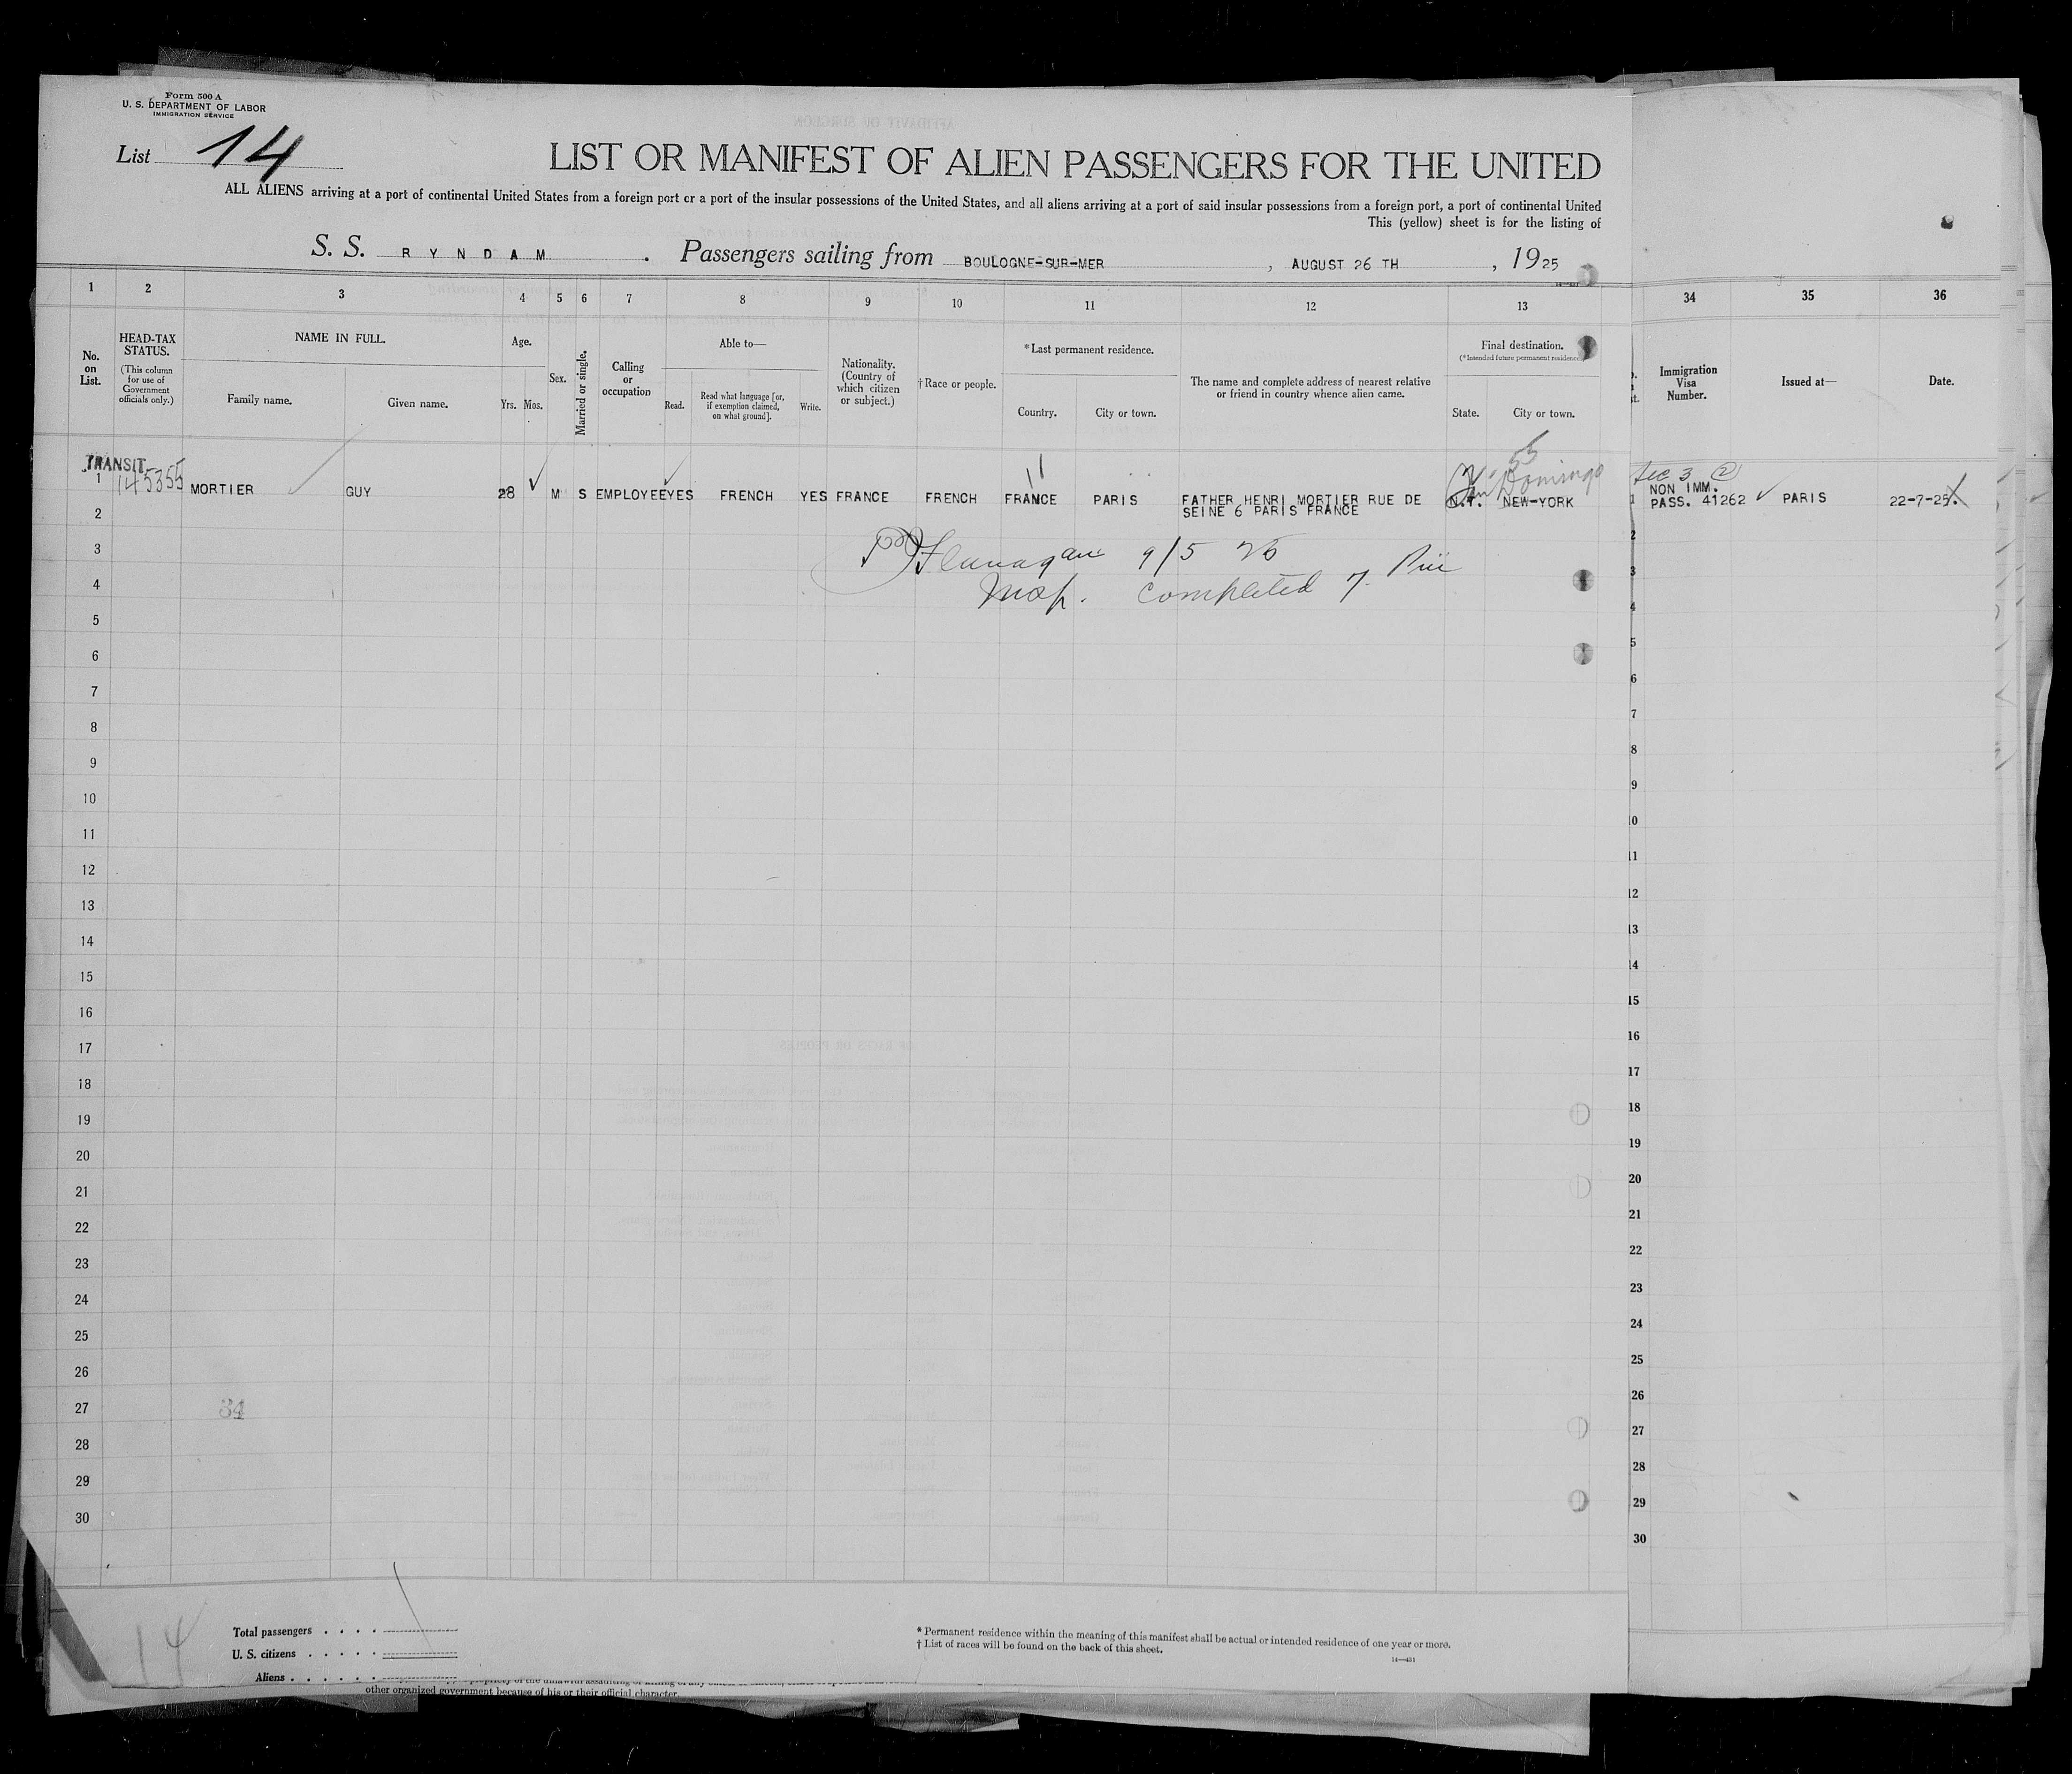 Form 500 A
U. S. DEPARTMENT OF LABOR
IMMIGRATION SERVICE
List 14
LIST OR MANIFEST OF ALIEN PASSENGERS FOR THE UNITED
ALL ALIENS arriving at a port of continental United States from a foreign port or a port of the insular possessions of the United States, and all aliens arriving at a port of said insular possessions from a foreign port, a port of continental United
This (yellow) sheet is for the listing of
S. S. RYNDAM. Passengers sailing from BOULOGNE-SUR-MER, AUGUST 26 TH, 1925
1 2 3 4 5 6 7 8 9 10 11 12 13 34 35 36
No. on List.
HEAD-TAX STATUS.
(This column for use of Government officials only.)
NAME IN FULL.
Family name. Given name.
Age.
Yrs. Mos.
Sex.
Married or single.
Calling or occupation
Able to—
Read. Read what language [or, if exemption claimed, on what ground]. Write.
Nationality. (Country of which citizen or subject.)
†Race or people.
*Last permanent residence.
Country. City or town.
The name and complete address of nearest relative or friend in country whence alien came.
Final destination.
(*Intended future permanent residence.)
State. City or town.
Immigration Visa Number.
Issued at—
Date.
55
TRANSIT
San Domingo
Sec 3 (2)
NON IMM.
1 145355 MORTIER GUY 28 M S EMPLOYEE YES FRENCH YES FRANCE FRENCH FRANCE PARIS FATHER HENRI MORTIER RUE DE N.Y. NEW-YORK 1 PASS. 41262 PARIS 22-7-25.
SEINE 6 PARIS FRANCE
2 2
3 Flanagan 9/5 25 3
4 Insp. completed 4
5 5
6 6
7 7
8 8
9 9
10 10
11 11
12 12
13 13
14 14
15 15
16 16
17 17
18 18
19 19
20 20
21 21
22 22
23 23
24 24
25 25
26 26
27 34 27
28 28
29 29
30 30
14
Total passengers . . . .
U. S. citizens . . . . .
Aliens . . . . . .
* Permanent residence within the meaning of this manifest shall be actual or intended residence of one year or more.
† List of races will be found on the back of this sheet.
14—431
other organized government because of his or their official character